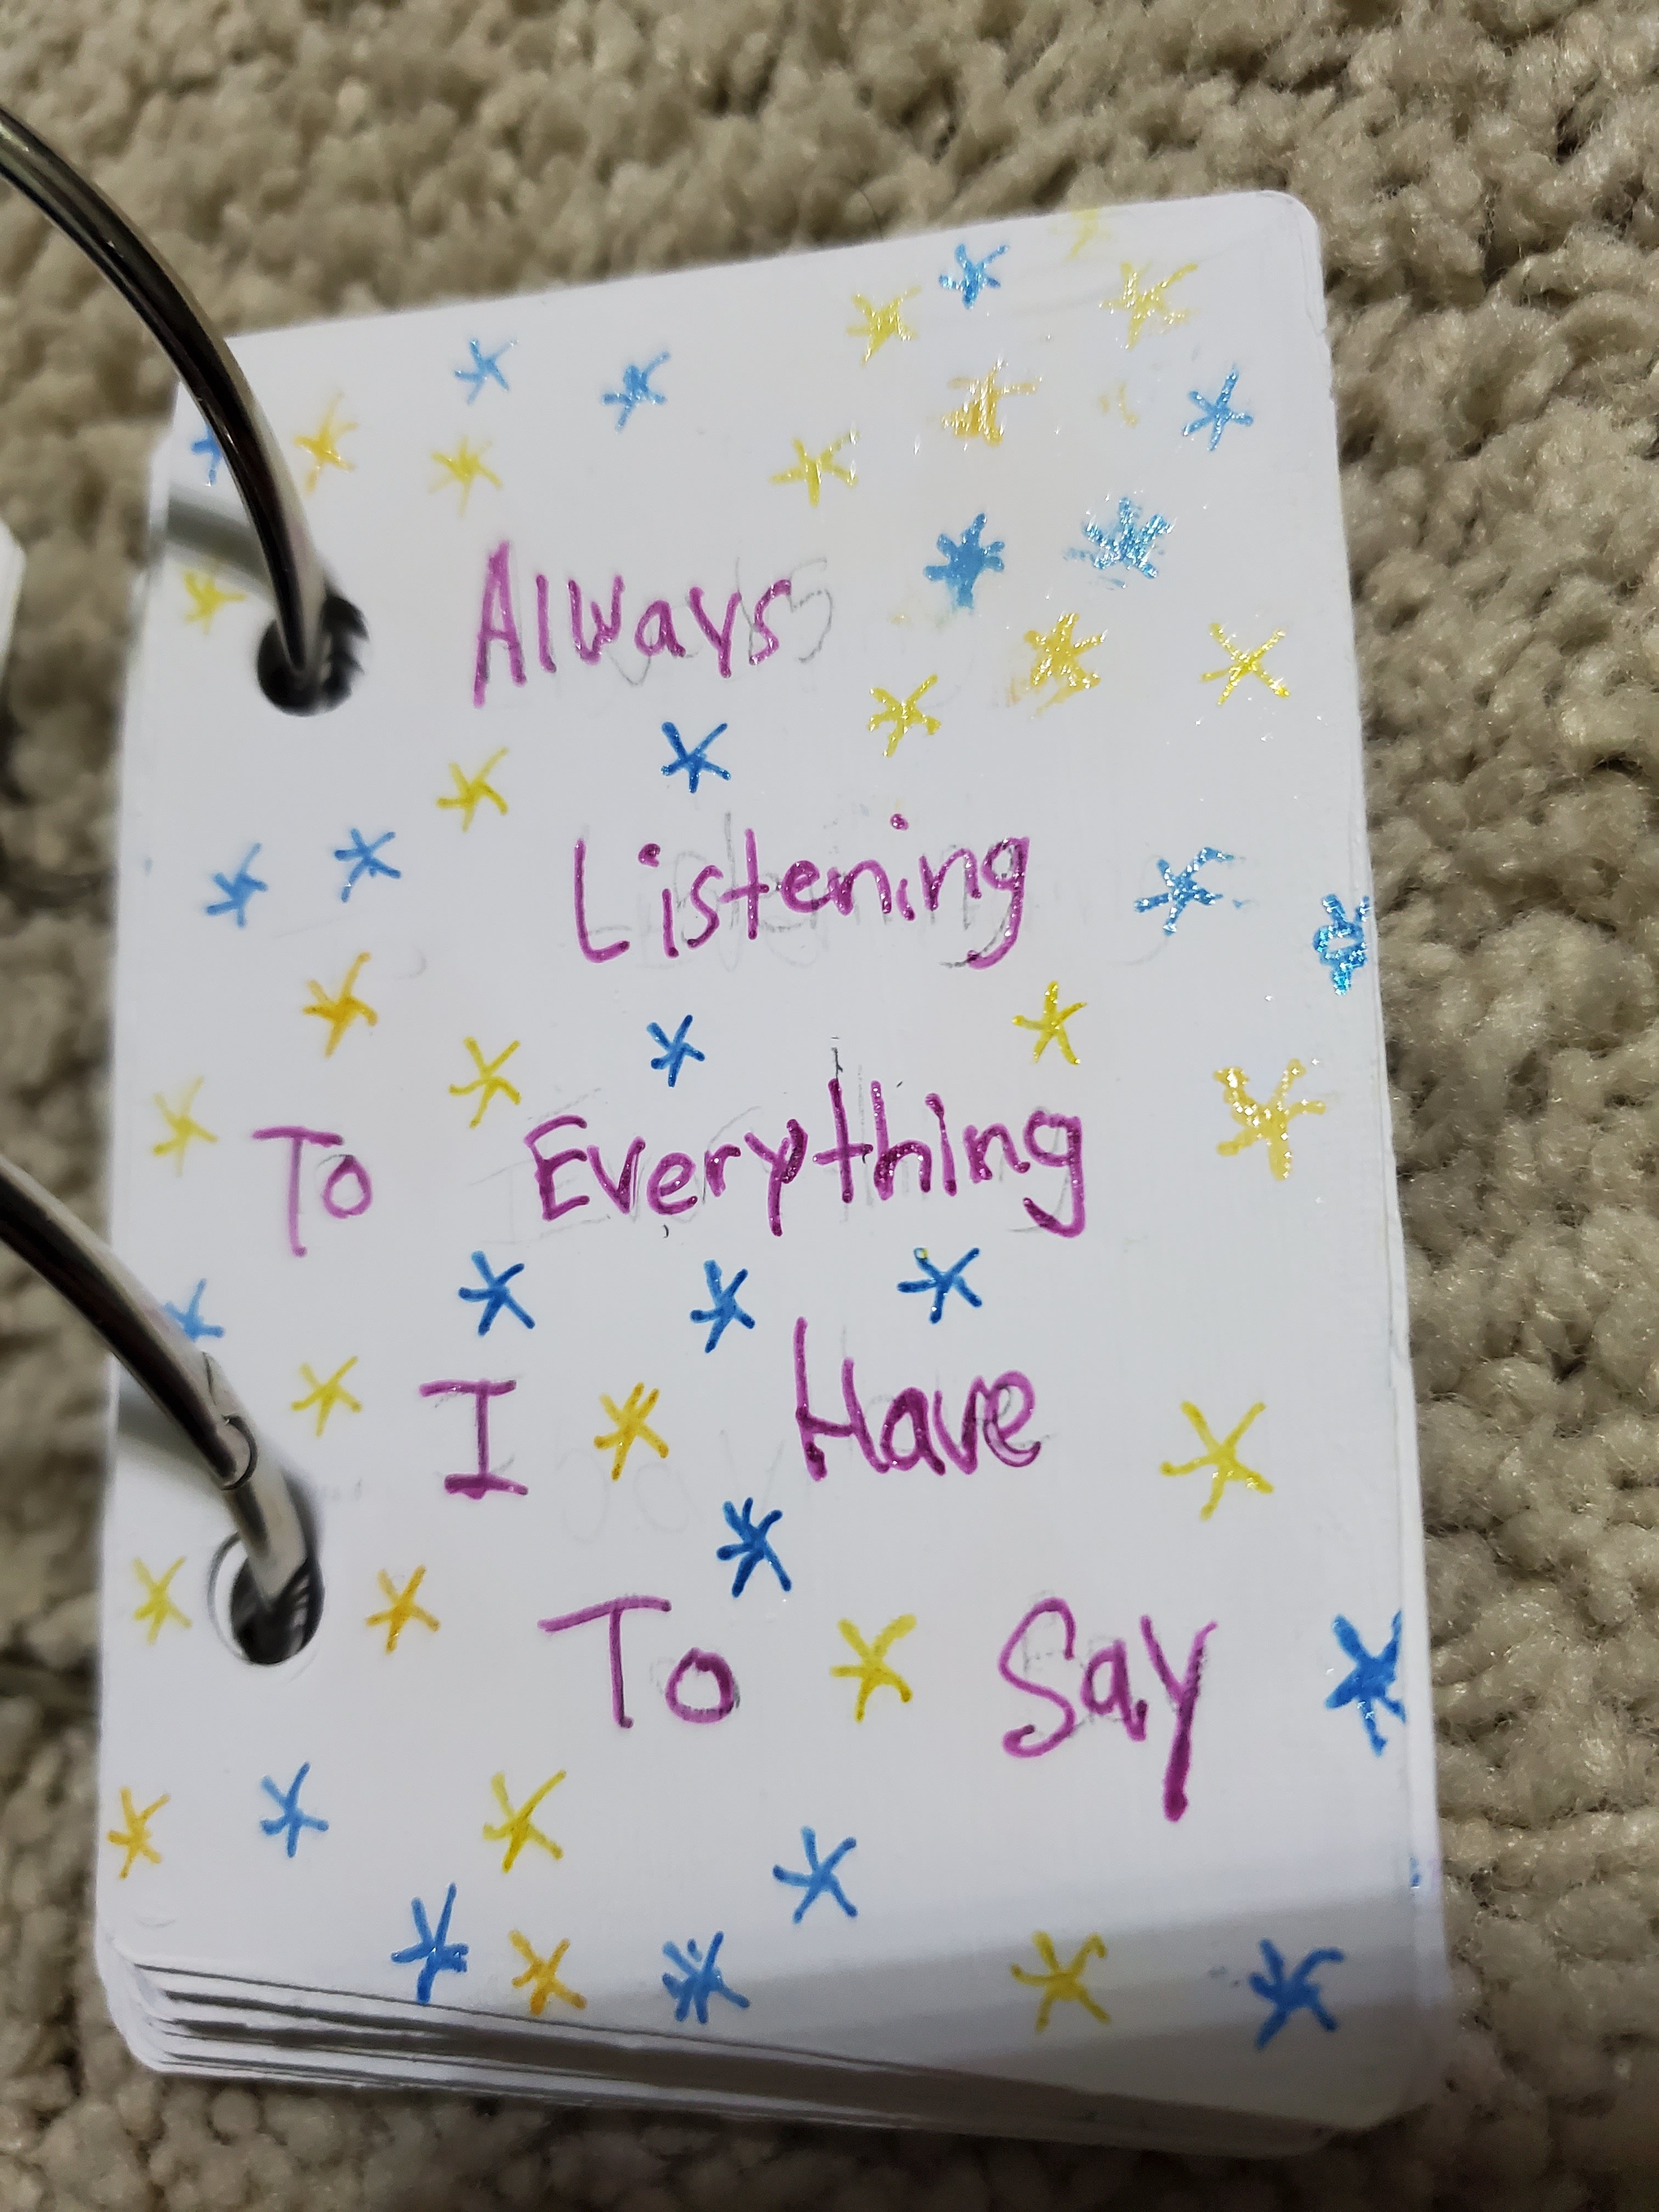 Always
Listening
To Everything
I Have
To Say